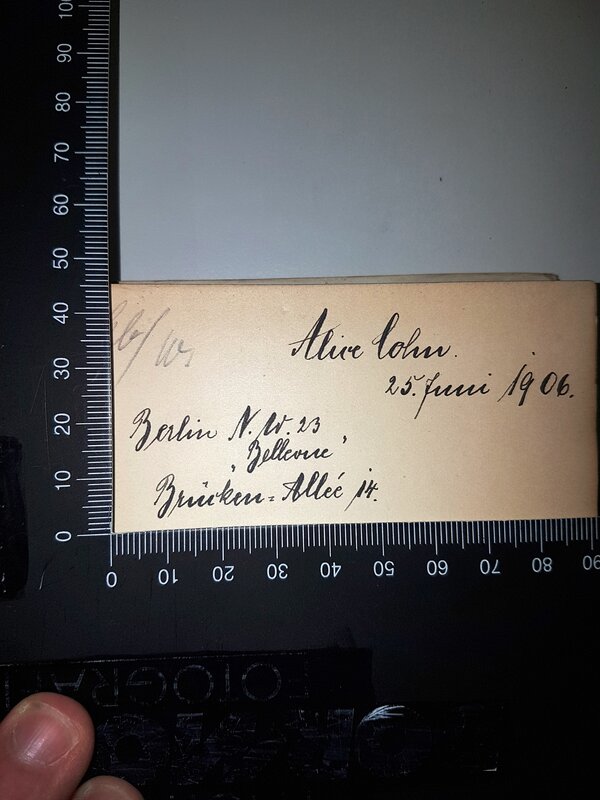 Alice Cohn.
25. Juni 1906.
Berlin N. W. 23
"Bellevue"
Brücken=Alleé 14.
100
90
80
70
60
50
40
30
20
10
0
0 10 20 30 40 50 60 70 80 90
FOTOGRAF